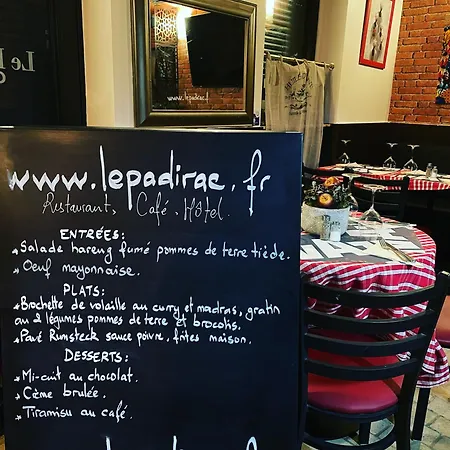 Le P
www.lepadirac.fr
www.lepadirac.fr
Restaurant, Café, Hôtel.
ENTRÉES:
* Salade hareng fumé pommes de terre tiède.
* Oeuf mayonnaise.
PLATS:
* Brochette de volaille au curry et madras, gratin
au 2 légumes pommes de terre et brocolis.
* Pavé Rumsteck sauce poivre, frites maison.
DESSERTS:
* Mi-cuit au chocolat.
* Cème brulée.
* Tiramisu au café.
www.lepadirac.fr